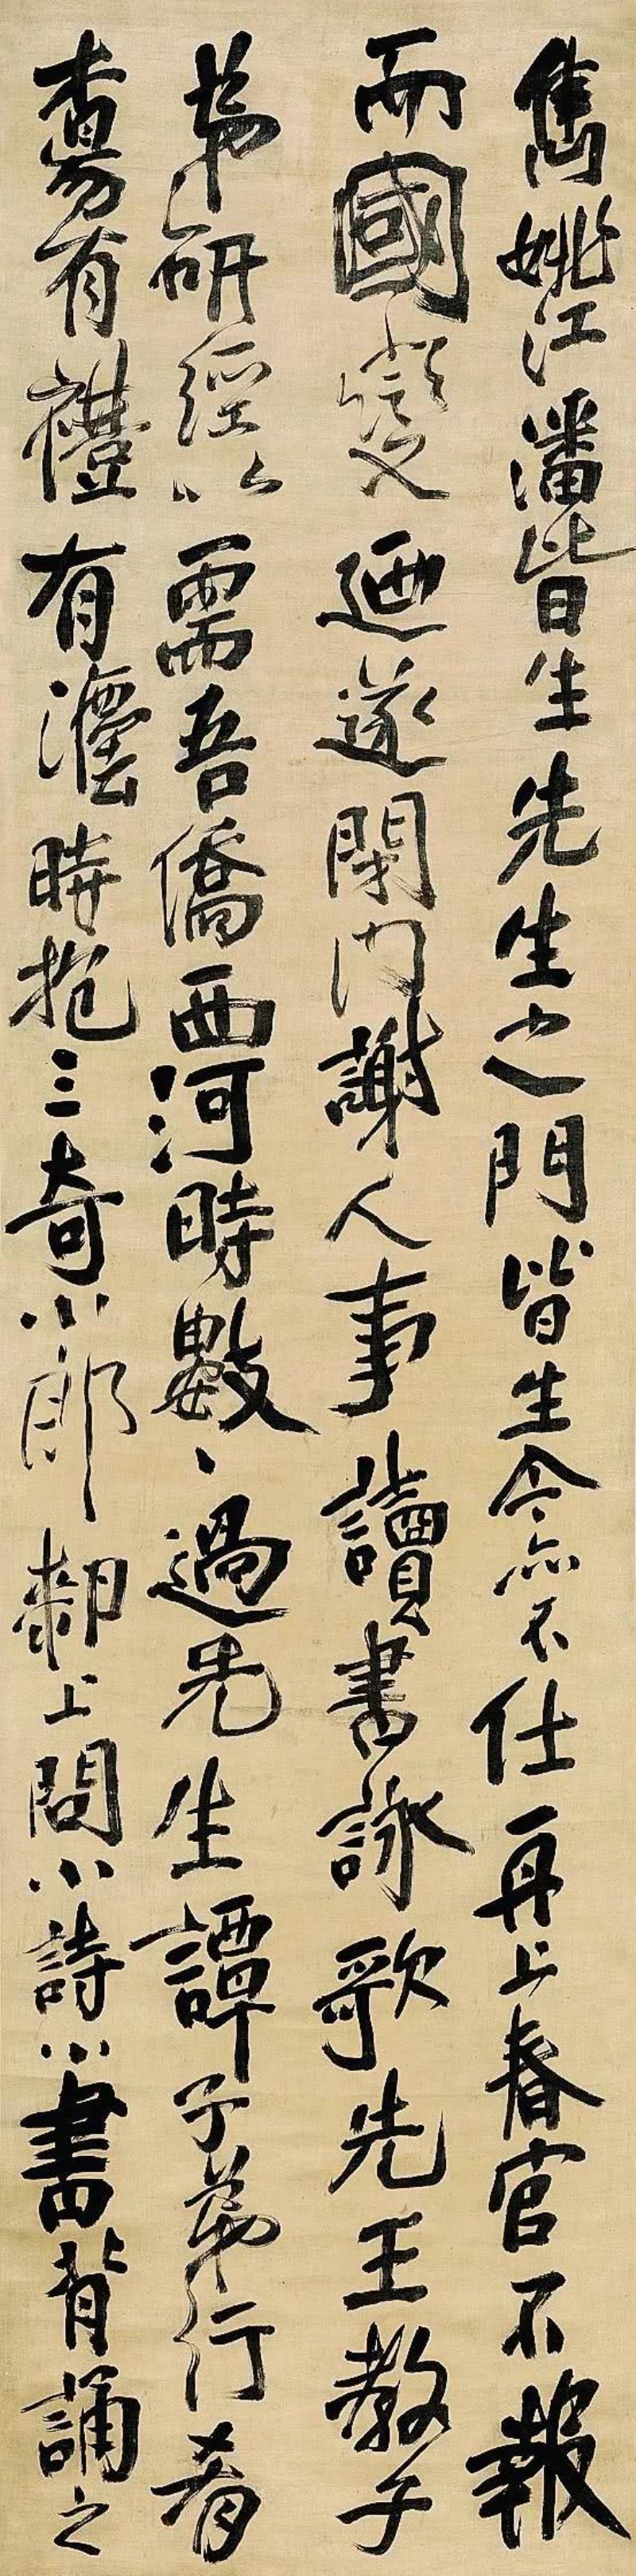 雋姚江潘皆生先生之門皆生今亦不仕再上春官不報
而國變迺遂閉門謝人事讀書詠歌先王教子
弟研經以需吾僑西河時數〻過先生譚子弟行肴
有禮有瀍時抱三奇小郎𠡠上問小詩小書背誦之